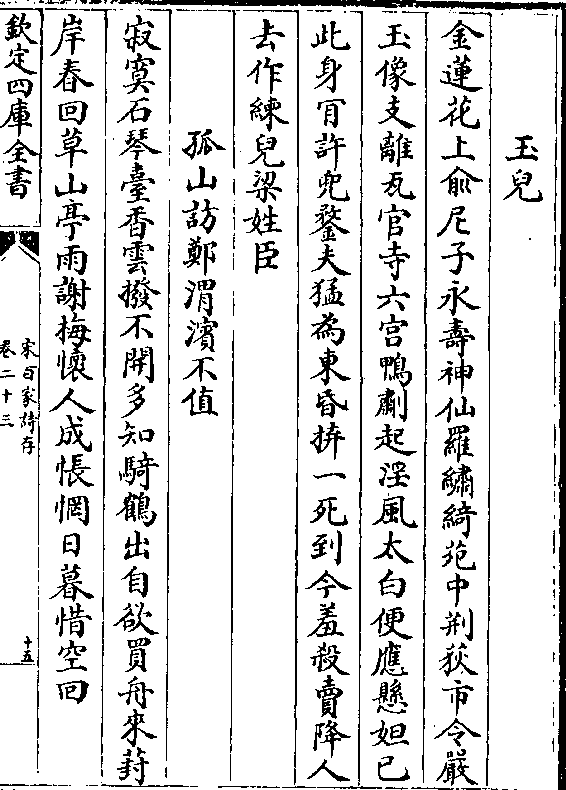 玉兒
金蓮花上俞尼子永壽神仙羅繡綺苑中荆荻市令嚴
玉像支離瓦官寺六宮鴨劘起淫風太白便應懸妲己
此身肎許兜鍪夫猛為東昏拚一死到今羞殺賣降人
去作練兒梁姓臣
孤山訪鄭渭濱不值
寂寞石琴臺香雲撥不開多知騎鶴出自欲買舟來葑
岸春回草山亭雨謝梅懷人成悵惘日暮惜空回
欽定四庫全書
宋百家詩存
卷二十三
十五